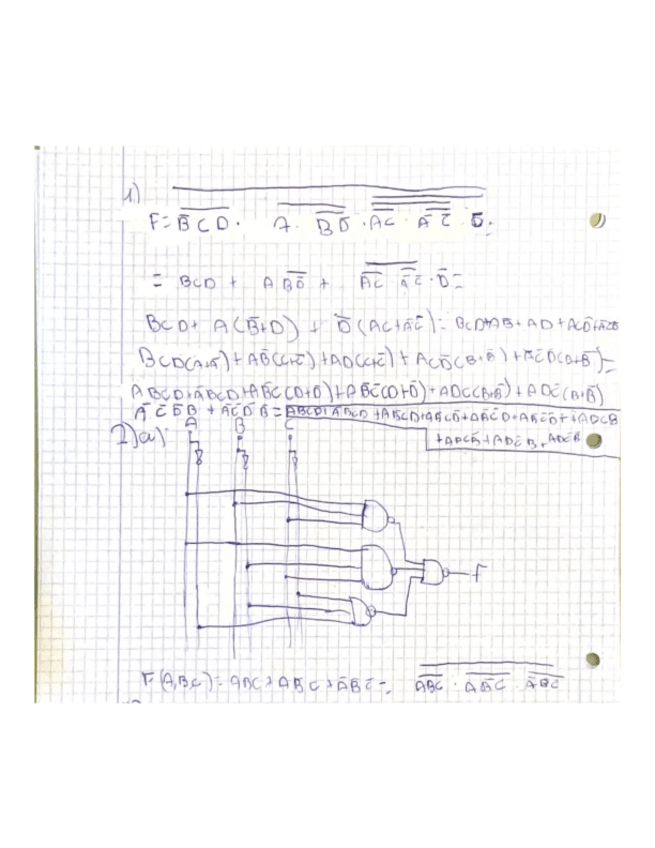 1)
F = B̅C̅D̅ · A · B̅D̅ · A̅C̅ · A̅ C̅ · D̅ ·
= BCD + A B̅D̅ + A̅C̅ · A̅ C̅ · D̅ =
BCD + A(B̅+D) + D̅(AC+A̅C̅) = BCD+AB̅+AD+ACD̅+
BCD(A+A̅)+AB̅(C+C̅)+AD(C+C̅)+ACD̅(B+B̅)+A̅C̅D̅(B+B̅)=
ABCD+A̅BCD+AB̅C(D+D̅)+AB̅C̅(D+D̅)+ADC(B+B̅)+ADC̅(B+B̅)
A̅C̅D̅B + A̅C̅D̅B̅ = ABCD+A̅BCD+AB̅CD+AB̅CD̅+AB̅C̅D+AB̅C̅D̅+ADCB
+ADCB̅+ADC̅B+ADC̅B̅
2) a)
A B C
F
F(A,B,C) = ABC + AB̅C + A̅B̅C̅ = A̅B̅C̅ · A̅B̅C̅ · A̅B̅C̅